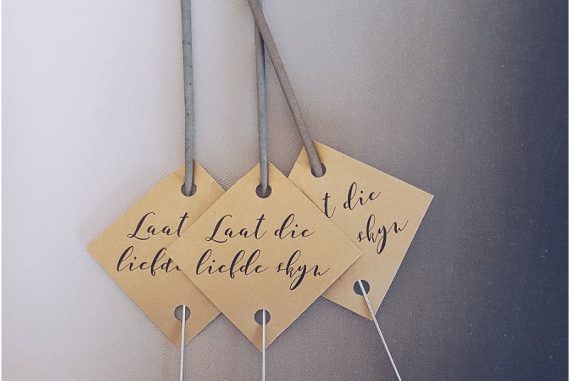 Laat
liefde
Laat die
liefde skyn
t die
skyn